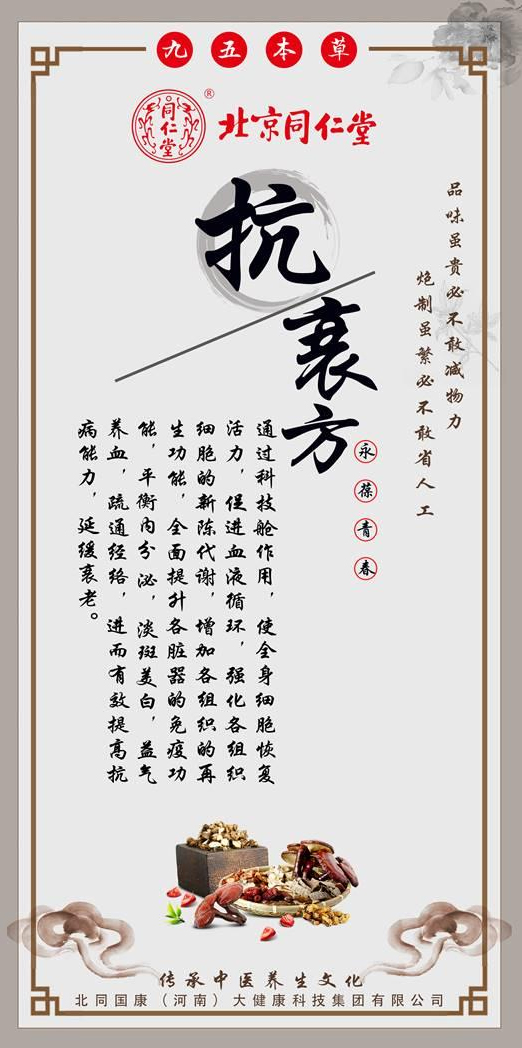 九五本草
同仁堂
®
北京同仁堂
抗衰方
永葆青春
品味虽贵必不敢减物力
炮制虽繁必不敢省人工
通过科技舱作用，使全身细胞恢复
活力，促进血液循环，强化各组织
细胞的新陈代谢，增加各组织的再
生功能，全面提升各脏器的免疫功
能，平衡内分泌，淡斑美白，益气
养血，疏通经络，进而有效提高抗
病能力，延缓衰老。
传承中医养生文化
北同国康（河南）大健康科技集团有限公司